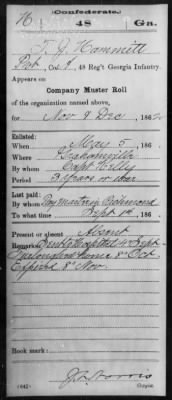 (Confederate.)
H 48 Ga.
T. J. Hammitt
Pvt, Co. 48 Reg't Georgia Infantry.
Appears on
Company Muster Roll
of the organization named above,
for Nov & Dec, 186
Enlisted:
When May 5 186
Where
By whom Capt Kelly
Period 3 Years or war
Last paid:
By whom Paymaster in Richmond
To what time Sept 1st 186
Present or absent Absent
Remarks: Sent to Hospital Sept
Furloughed home 8" Oct
Expired 8" Nov.
Book mark:
(642)
Copyist.